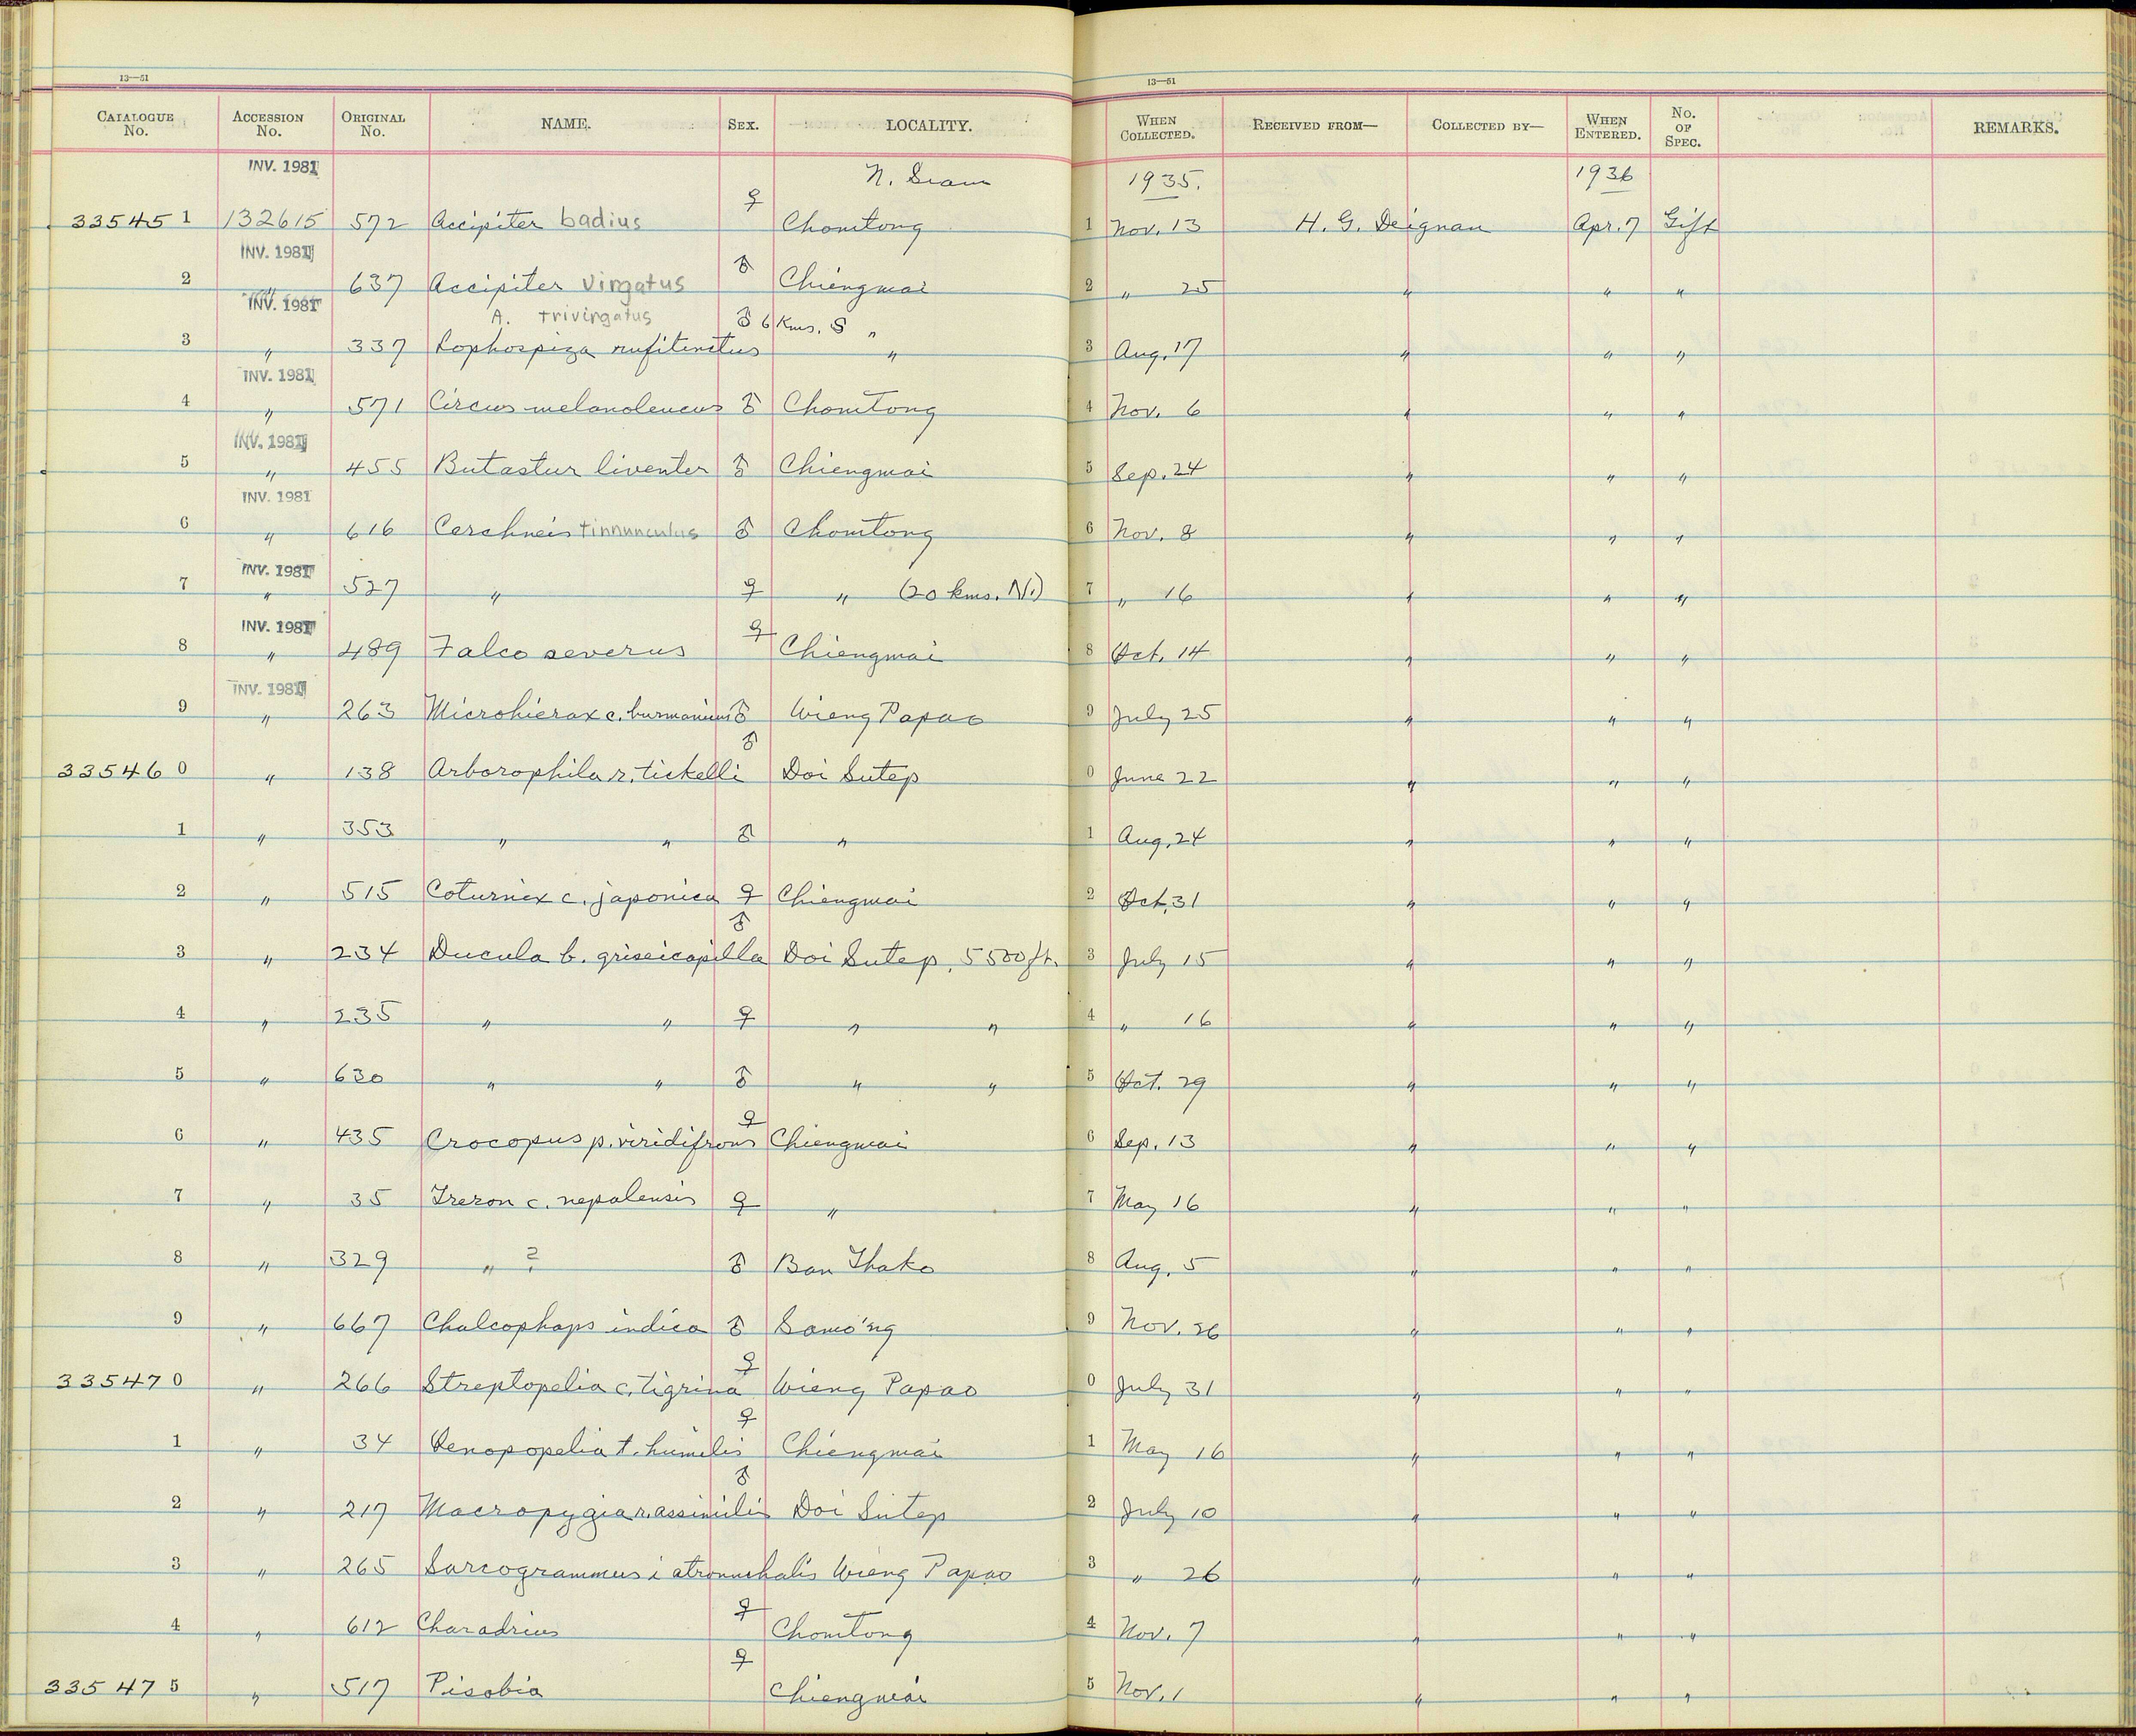 13—51
13—51
CATALOGUE No. ACCESSION No. ORIGINAL No. NAME. SEX. LOCALITY. WHEN COLLECTED. RECEIVED FROM— COLLECTED BY— WHEN ENTERED. No. OF SPEC. REMARKS.
INV. 1981 N. Siam 1935. 1936
335451 132615 572 Accipiter badius ♀ Chomtong 1 Nov. 13 H. G. Deignan Apr. 7 Gift
INV. 1981
2 " 637 Accipiter virgatus ♂ Chiengmai 2 " 25 " " "
INV. 1981 A. trivirgatus 6 Kms. S "
3 " 337 Lophospiza rufitinctus ♂ " 3 Aug. 17 " " "
INV. 1981
4 " 571 Circus melanoleucus ♂ Chomtong 4 Nov. 6 " " "
INV. 1981
5 " 455 Butastur liventer ♂ Chiengmai 5 Sep. 24 " " "
INV. 1981
6 " 616 Cerchneis tinnunculus ♂ Chomtong 6 Nov. 8 " " "
INV. 1981
7 " 527 " ♀ " (20 kms. N.) 7 " 16 " " "
INV. 1981
8 " 489 Falco severus ♀ Chiengmai 8 Oct. 14 " " "
INV. 1981
9 " 263 Microhierax c. burmanicus ♂ Wieng Papao 9 July 25 " " "
335460 " 138 Arborophila r. tickelli ♂ Doi Sutep 0 June 22 " " "
1 " 353 " " ♂ " 1 Aug. 24 " " "
2 " 515 Coturnix c. japonica ♀ Chiengmai 2 Oct. 31 " " "
3 " 234 Ducula b. griseicapilla ♂ Doi Sutep, 5500 ft. 3 July 15 " " "
4 " 235 " " ♀ " " 4 " 16 " " "
5 " 630 " " ♂ " " 5 Oct. 29 " " "
6 " 435 Crocopus p. viridifrons ♀ Chiengmai 6 Sep. 13 " " "
7 " 35 Treron c. nepalensis ♀ " 7 May 16 " " "
8 " 329 " ? ♂ Ban Thako 8 Aug. 5 " " "
9 " 667 Chalcophaps indica ♂ Samo'ng 9 Nov. 26 " " "
335470 " 266 Streptopelia c. tigrina ♀ Wieng Papao 0 July 31 " " "
1 " 34 Oenopopelia t. humilis ♀ Chiengmai 1 May 16 " " "
2 " 217 Macropygia r. assimilis ♂ Doi Sutep 2 July 10 " " "
3 " 265 Sarcogrammus i atronuchalis Wieng Papao 3 " 26 " " "
4 " 612 Charadrius ♀ Chomtong 4 Nov. 7 " " "
335475 " 517 Pisobia ♀ Chiengmai 5 Nov. 1 " " "